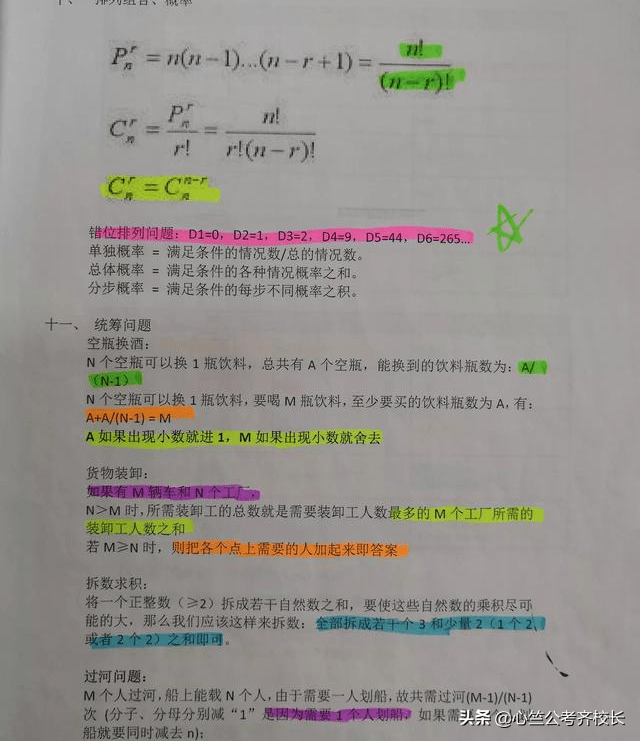 十、 排列组合、概率
P_n^r = n(n−1)...(n−r+1) = n!/(n−r)!
C_n^r = P_n^r/r! = n!/r!(n−r)!
C_n^r = C_n^{n−r}
错位排列问题：D1=0，D2=1，D3=2，D4=9，D5=44，D6=265…
单独概率 = 满足条件的情况数/总的情况数。
总体概率 = 满足条件的各种情况概率之和。
分步概率 = 满足条件的每步不同概率之积。
十一、 统筹问题
空瓶换酒：
N 个空瓶可以换 1 瓶饮料，总共有 A 个空瓶，能换到的饮料瓶数为：A/
（N-1）
N 个空瓶可以换 1 瓶饮料，要喝 M 瓶饮料，至少要买的饮料瓶数为 A，有：
A+A/(N-1) = M
A 如果出现小数就进 1，M 如果出现小数就舍去
货物装卸：
如果有 M 辆车和 N 个工厂，
N＞M 时，所需装卸工的总数就是需要装卸工人数最多的 M 个工厂所需的
装卸工人数之和
若 M≥N 时，则把各个点上需要的人加起来即答案
拆数求积：
将一个正整数（≥2）拆成若干自然数之和，要使这些自然数的乘积尽可
能的大，那么我们应该这样来拆数：全部拆成若干个 3 和少量 2（1 个 2、
或者 2 个 2）之和即可。
过河问题：
M 个人过河，船上能载 N 个人，由于需要一人划船，故共需过河(M-1)/(N-1)
次（分子、分母分别减“1”是因为需要 1 个人划船，如果需
船就要同时减去 n）；
头条 @心竺公考齐校长